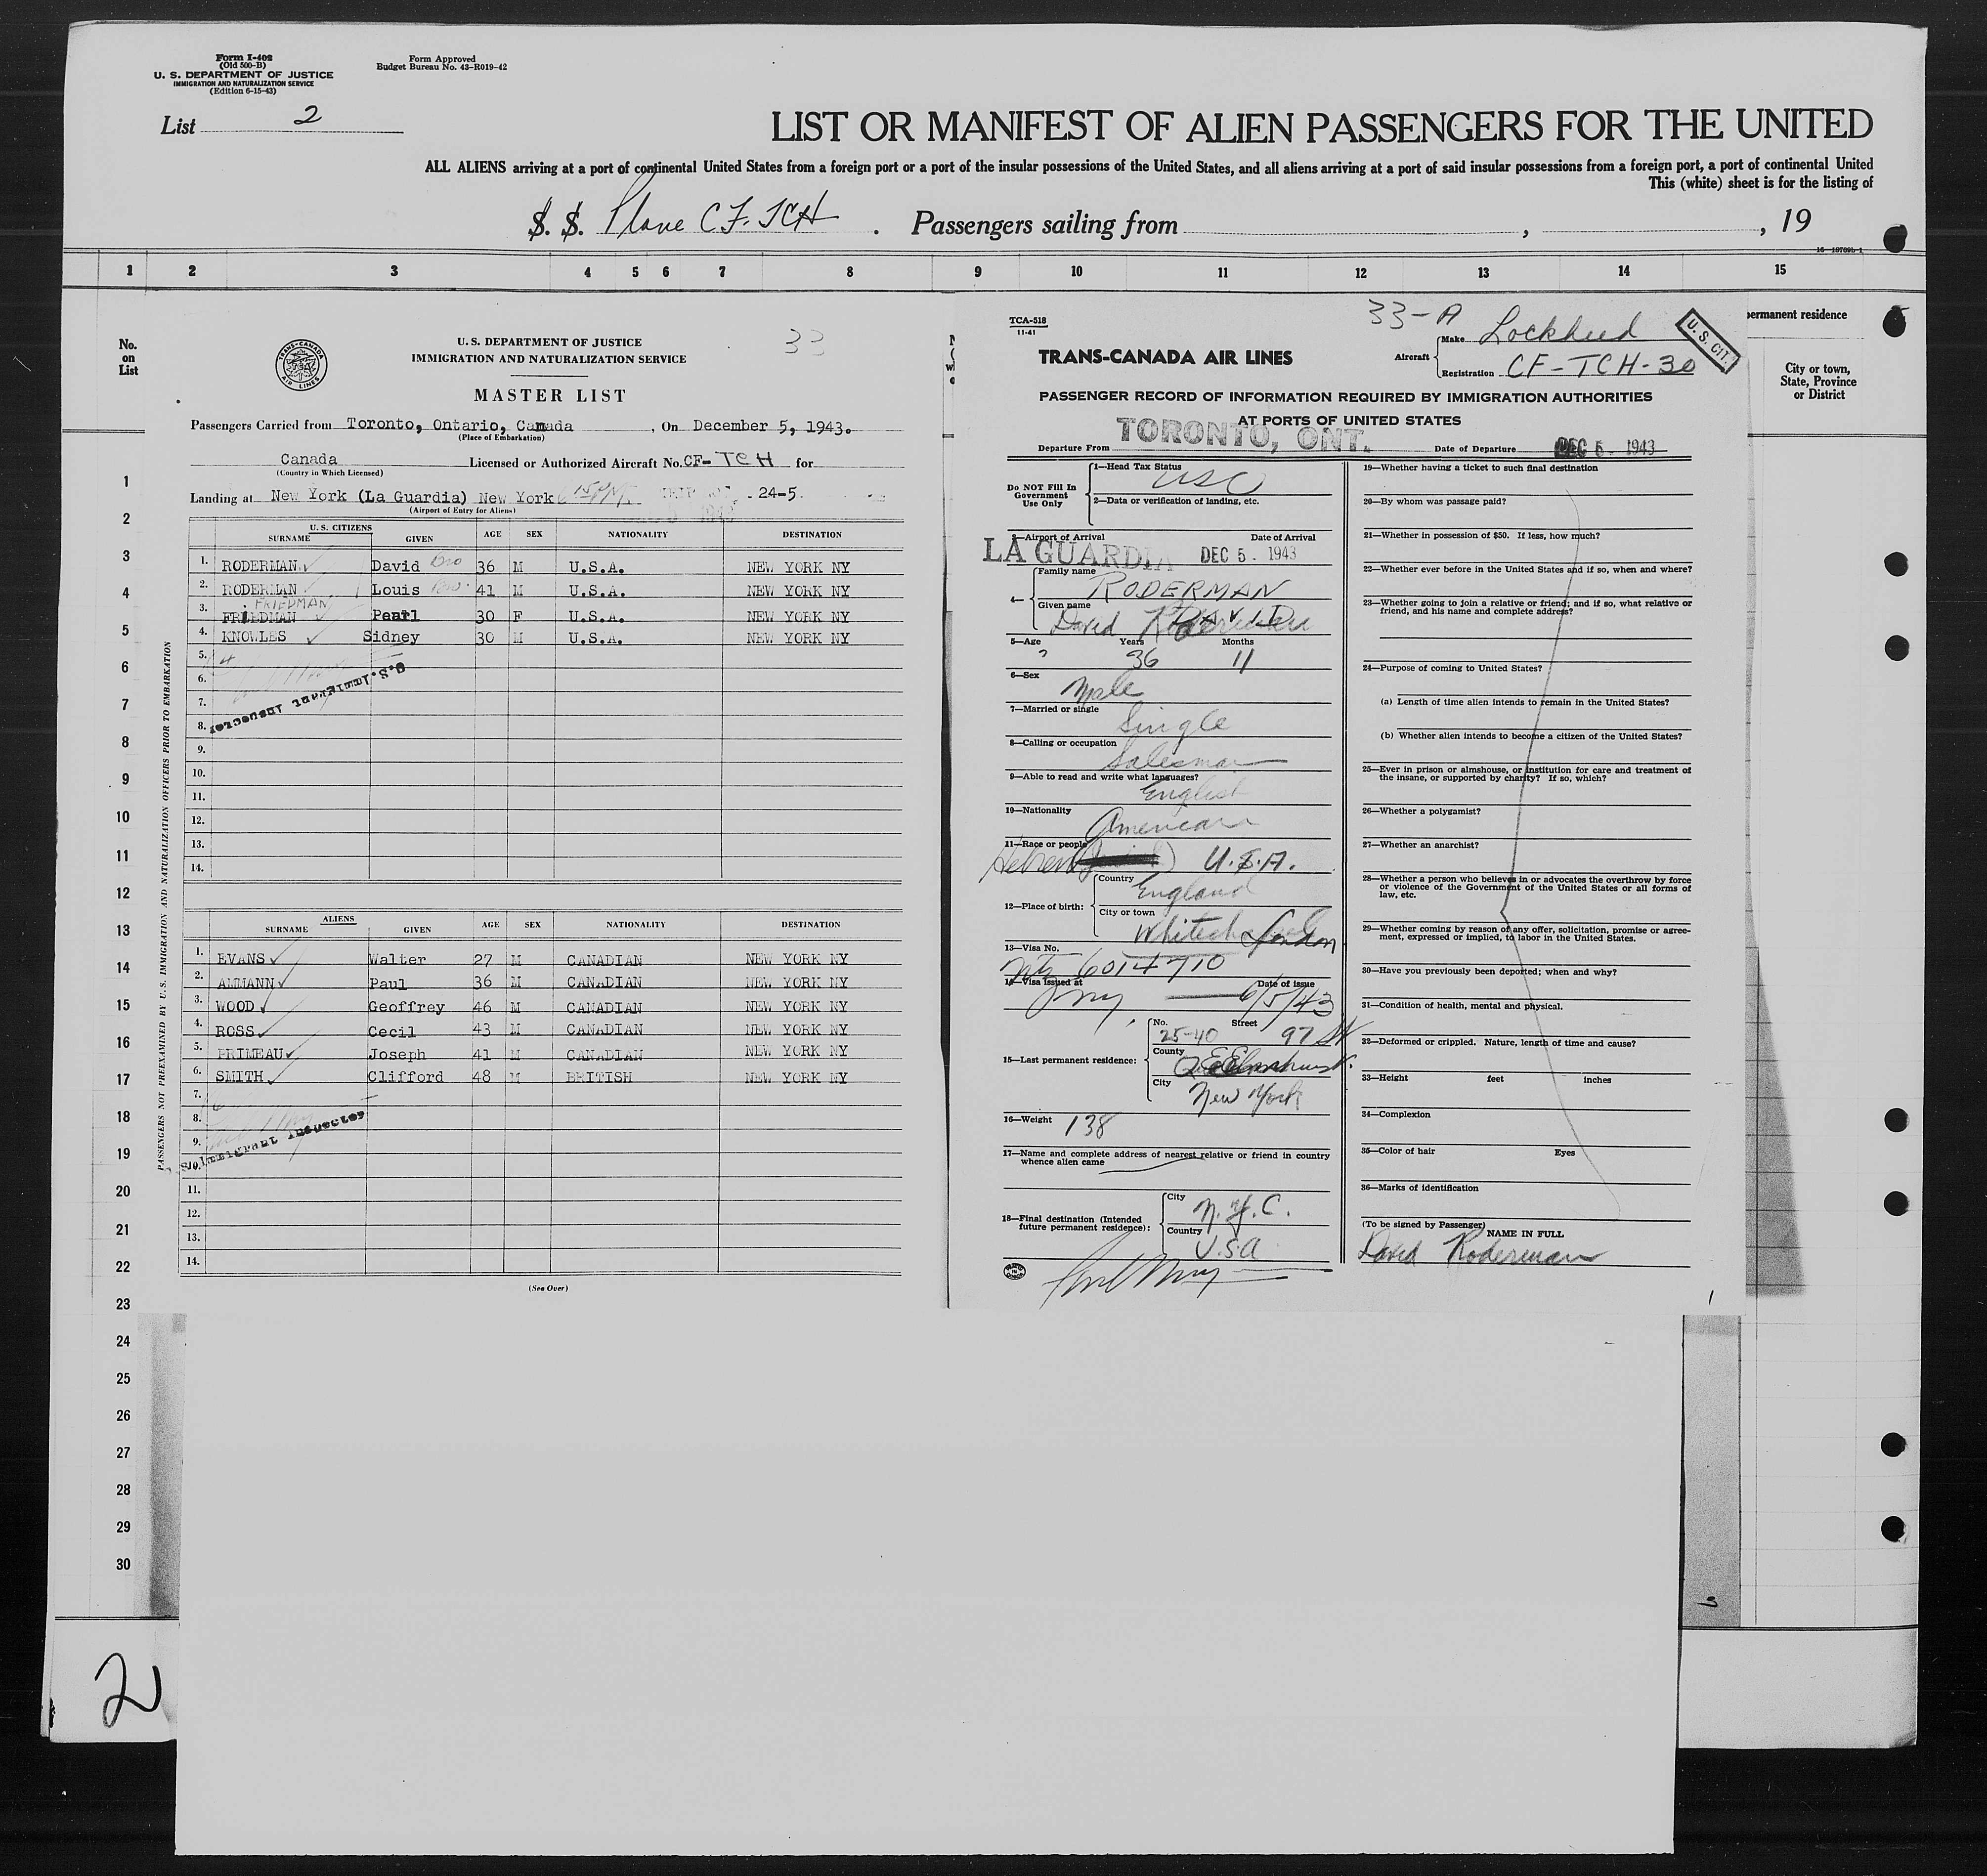 Form I-402
(Old 500-B)
U. S. DEPARTMENT OF JUSTICE
IMMIGRATION AND NATURALIZATION SERVICE
(Edition 6-15-43)
Form Approved
Budget Bureau No. 43-R019-42
List 2
LIST OR MANIFEST OF ALIEN PASSENGERS FOR THE UNITED
ALL ALIENS arriving at a port of continental United States from a foreign port or a port of the insular possessions of the United States, and all aliens arriving at a port of said insular possessions from a foreign port, a port of continental United
This (white) sheet is for the listing of
S. S. Plane CF-TCH . Passengers sailing from , , 19
1 2 3 4 5 6 7 8 9 10 11 12 13 14 15
No.
on
List
permanent residence
City or town,
State, Province
or District
1
2
3
4
5
6
7
8
9
10
11
12
13
14
15
16
17
18
19
20
21
22
23
24
25
26
27
28
29
30
2
PASSENGERS NOT PREEXAMINED BY U.S. IMMIGRATION AND NATURALIZATION OFFICERS PRIOR TO EMBARKATION
TRANS-CANADA AIR LINES
U. S. DEPARTMENT OF JUSTICE
IMMIGRATION AND NATURALIZATION SERVICE
33
MASTER LIST
Passengers Carried from Toronto, Ontario, Canada , On December 5, 1943.
(Place of Embarkation)
Canada Licensed or Authorized Aircraft No. CF-TCH for
(Country in Which Licensed)
Landing at New York (La Guardia) New York 24-5
(Airport of Entry for Aliens)
U. S. CITIZENS
SURNAME GIVEN AGE SEX NATIONALITY DESTINATION
1. RODERMAN David Bro 36 M U.S.A. NEW YORK NY
2. RODERMAN Louis Bro 41 M U.S.A. NEW YORK NY
FRIEDMAN
3. FRIEDMAN Pearl 30 F U.S.A. NEW YORK NY
4. KNOWLES Sidney 30 M U.S.A. NEW YORK NY
5. 4
6.
7.
8.
U.S. Immigrant Inspector
9.
10.
11.
12.
13.
14.
ALIENS
SURNAME GIVEN AGE SEX NATIONALITY DESTINATION
1. EVANS Walter 27 M CANADIAN NEW YORK NY
2. AMMANN Paul 36 M CANADIAN NEW YORK NY
3. WOOD Geoffrey 46 M CANADIAN NEW YORK NY
4. ROSS Cecil 43 M CANADIAN NEW YORK NY
5. PRIMEAU Joseph 41 M CANADIAN NEW YORK NY
6. SMITH Clifford 48 M BRITISH NEW YORK NY
7. 6
8.
9.
U.S. Immigrant Inspector
10.
11.
12.
13.
14.
(See Over)
TCA-518
11-41
33-A
TRANS-CANADA AIR LINES
Aircraft
Make Lockheed
Registration CF-TCH-30
U. S. CIT.
PASSENGER RECORD OF INFORMATION REQUIRED BY IMMIGRATION AUTHORITIES
AT PORTS OF UNITED STATES
Departure From TORONTO, ONT. Date of Departure DEC 5 - 1943
Do NOT Fill In
Government
Use Only
1—Head Tax Status
USC
2—Data or verification of landing, etc.
3—Airport of Arrival Date of Arrival
LA GUARDIA DEC 5 - 1943
4—
Family name
RODERMAN
Given name
David Roderman DAVID
5—Age Years Months
36 11
6—Sex
Male
7—Married or single
Single
8—Calling or occupation
Salesman
9—Able to read and write what languages?
English
10—Nationality
American
11—Race or people
Hebrew U.S.A.
12—Place of birth:
Country
England
City or town
Whitechapel London
13—Visa No.
6014710
14—Visa issued at Date of issue
6/5/43
15—Last permanent residence:
No. Street
25-40 97 St
County
Elmhurst
City
New York
16—Weight 138
17—Name and complete address of nearest relative or friend in country
whence alien came
18—Final destination (Intended
future permanent residence):
City
N.Y.C.
Country
U.S.A
19—Whether having a ticket to such final destination
20—By whom was passage paid?
21—Whether in possession of $50. If less, how much?
22—Whether ever before in the United States and if so, when and where?
23—Whether going to join a relative or friend; and if so, what relative or
friend, and his name and complete address?
24—Purpose of coming to United States?
(a) Length of time alien intends to remain in the United States?
(b) Whether alien intends to become a citizen of the United States?
25—Ever in prison or almshouse, or institution for care and treatment of
the insane, or supported by charity? If so, which?
26—Whether a polygamist?
27—Whether an anarchist?
28—Whether a person who believes in or advocates the overthrow by force
or violence of the Government of the United States or all forms of
law, etc.
29—Whether coming by reason of any offer, solicitation, promise or agree-
ment, expressed or implied, to labor in the United States.
30—Have you previously been deported; when and why?
31—Condition of health, mental and physical.
32—Deformed or crippled. Nature, length of time and cause?
33—Height feet inches
34—Complexion
35—Color of hair Eyes
36—Marks of identification
(To be signed by Passenger) NAME IN FULL
David Roderman
1
3